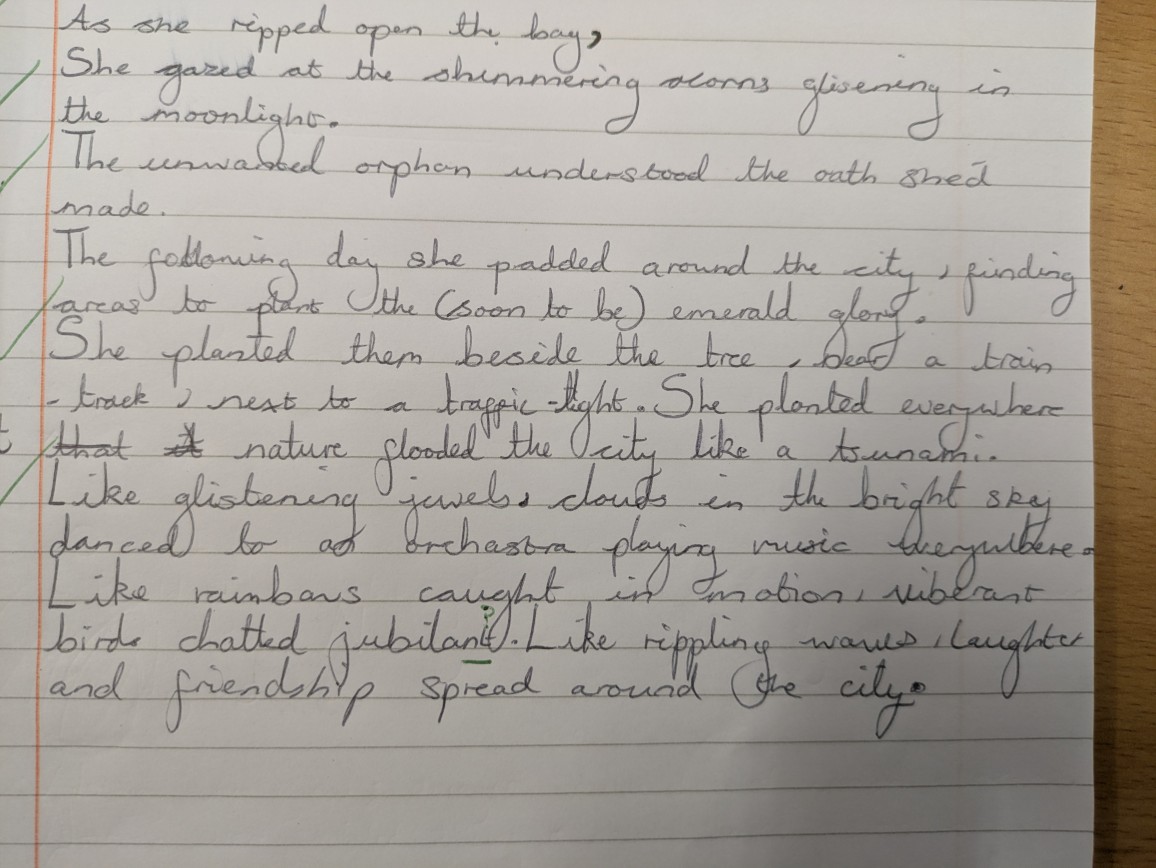 As she ripped open the bag,
She gazed at the shimmering acorns glisening in
the moonlight.
The unwanted orphan understood the oath shed
made.
The following day she padded around the city, finding
areas to plant the (soon to be) emerald glory.
She planted them beside the tree, a train
-track, next to a traffic-light. She planted everywhere
that nature flooded the city like a tsunami.
Like glistening jewels, clouds in the bright sky
danced to an orchastra playing music everywhere.
Like rainbows caught in motion, viberant
birds chatted jubilant. Like rippling waves, laughter
and friendship spread around the city.